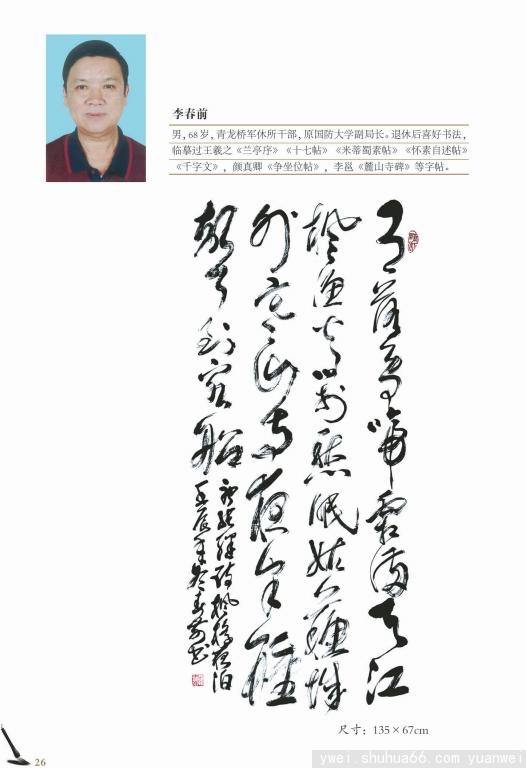 李春前
男，68岁，青龙桥军休所干部，原国防大学副局长。退休后喜好书法，
临摹过王羲之《兰亭序》《十七帖》《米蒂蜀素帖》《怀素自述帖》
《千字文》，颜真卿《争坐位帖》，李邕《麓山寺碑》等字帖。
月落乌啼霜满天江
枫渔火对愁眠姑苏城
外寒山寺夜半钟
声到客船
张继诗枫桥夜泊
壬辰年冬春前书
尺寸：135×67cm
26
ywei.shuhua66.com yuanwei